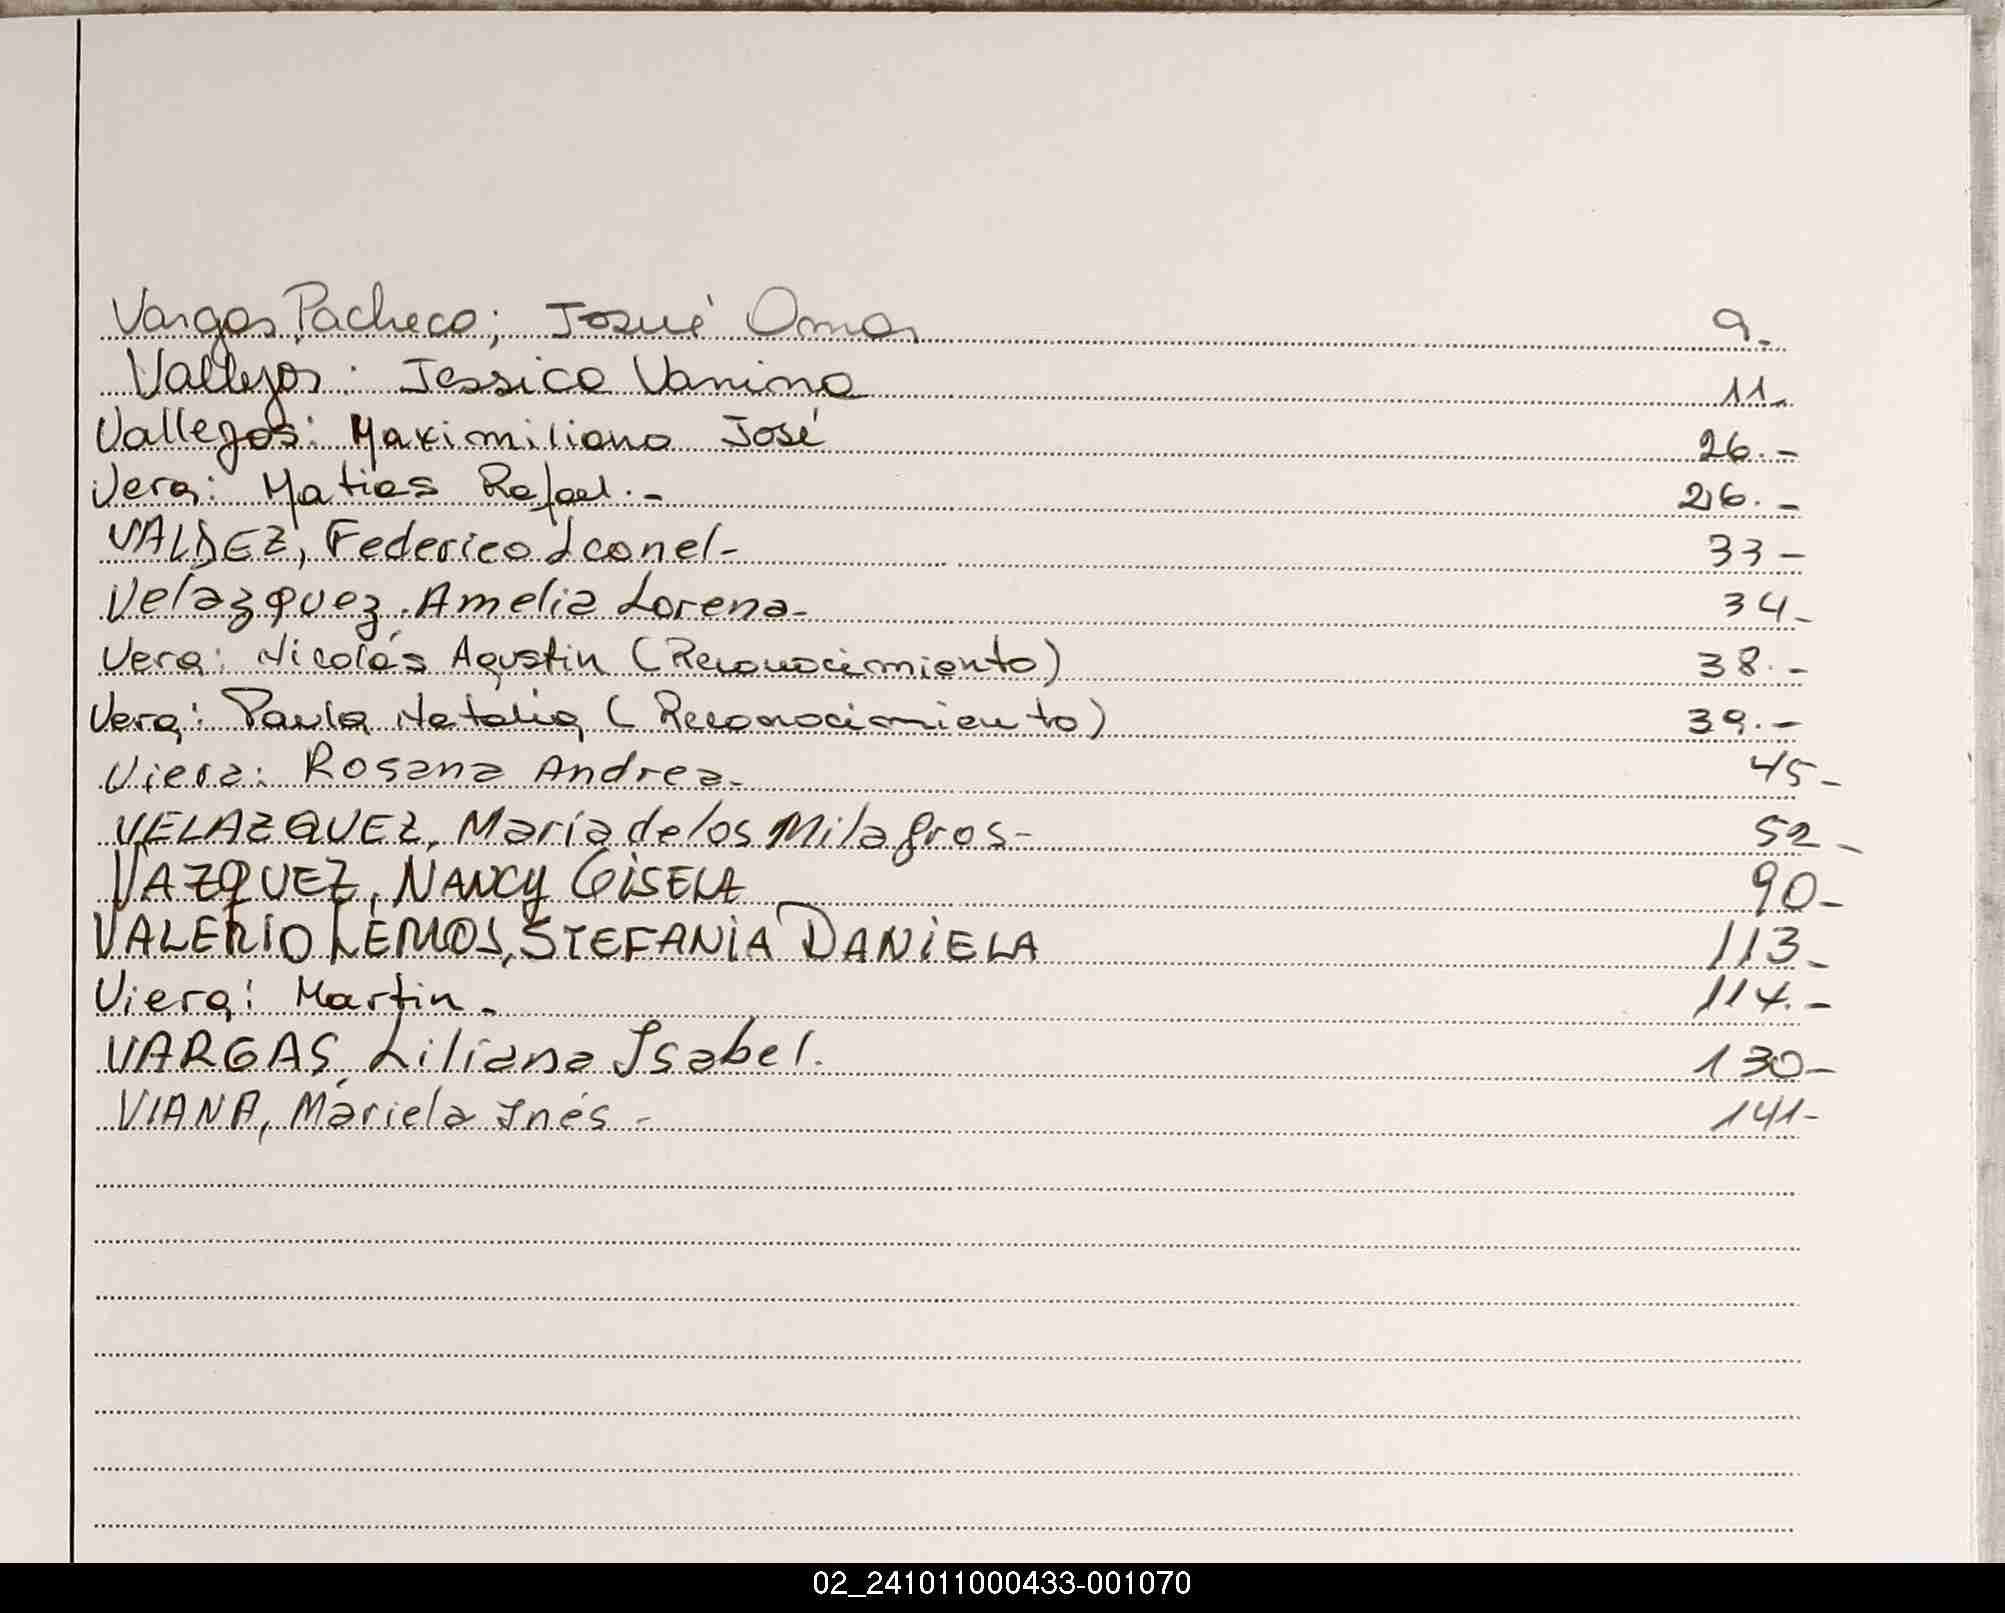 Vargas Pacheco; Josué Omar 9.-
Vallejos: Jessica Vanina 11-
Vallejos: Maximiliano José 26.-
Vera: Matias Rafael.- 26.-
VALDEZ, Federico Leonel- 33-
Velazquez. Amelia Lorena- 34-
Vera: Nicolás Agustin (Reconocimiento) 38.-
Vera: Paula Natalia (Reconocimiento) 39.-
Viera: Rosana Andrea- 45-
VELAZQUEZ, María de los Milagros- 52-
VAZQUEZ, NANCY GiSELA 90-
VALERIO LEMOS, STEFANiA DANiELA 113-
Viera: Martin- 114.-
VARGAS, Liliana Isabel. 130-
VIANA, Mariela Inés- 141-
02_241011000433-001070